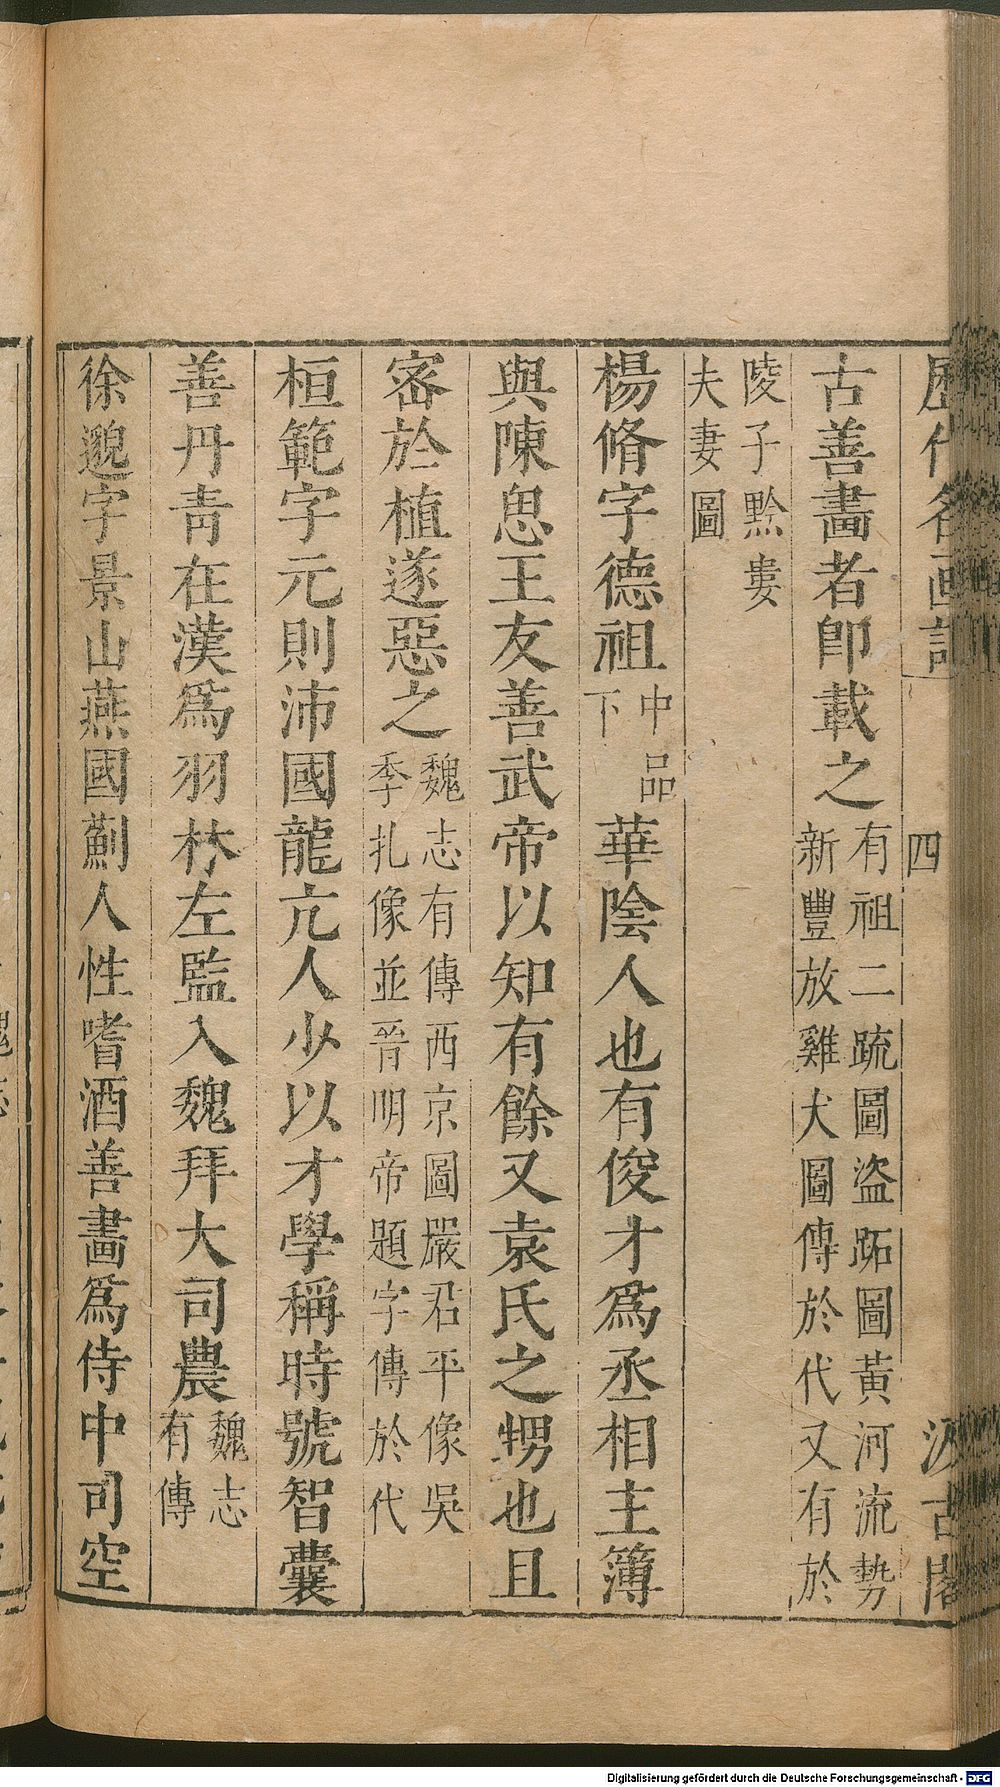 歷代名画記 四 汲古閣
古善畵者卽載之有祖二疏圖盜跖圖黃河流勢新豐放雞犬圖傳於代又有於
陵子黔婁夫妻圖
楊脩字德祖中品下華陰人也有俊才爲丞相主簿
與陳思王友善武帝以知有餘又袁氏之甥也且
宻於植遂惡之魏志有傳西京圖嚴君平像吳季扎像並晉明帝題字傳於代
桓範字元則沛國龍亢人少以才學稱時號智囊
善丹靑在漢爲羽林左監入魏拜大司農魏志有傳
徐邈字景山燕國薊人性嗜酒善畵爲侍中司空
Digitalisierung gefördert durch die Deutsche Forschungsgemeinschaft - DFG